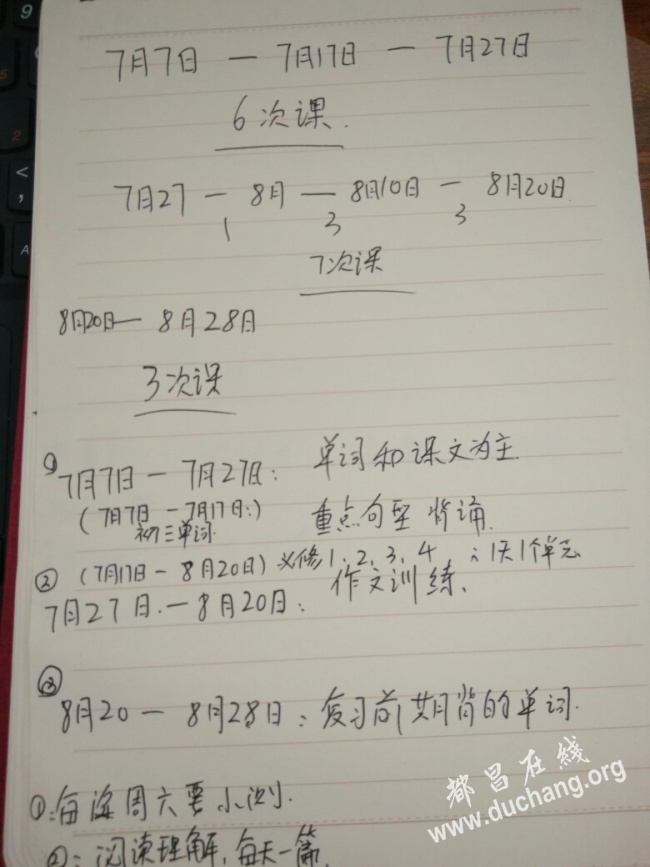 7月7日 — 7月17日 — 7月27日
6次课.
7月27 — 8月 — 8月10日 — 8月20日
1 3 3
7次课
8月20日— 8月28日
3次课
①
7月7日 — 7月27日: 单词和课文为主
(7月7日 — 7月17日:) 重点句型 背诵.
初三单词.
② (7月17日 - 8月20日) 必修1、2、3、4 1天1个单元
7月27日.—8月20日: 作文训练.
③
8月20 — 8月28日: 复习前期背的单词.
①: 每 周六要小测.
②: 阅读理解, 每天一篇
都昌在线
www.duchang.org
9
2
<
,